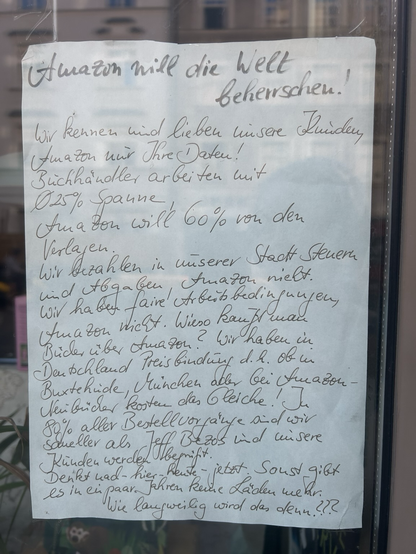 Amazon will die Welt
beherrschen!
Wir kennen und lieben unsere Kunden,
Amazon nur Ihre Daten!
Buchhändler arbeiten mit
Ø25% Spanne!
Amazon will 60% von den
Verlagen.
Wir bezahlen in unserer Stadt Steuern
und Abgaben, Amazon nicht.
Wir haben faire Arbeitsbedingungen,
Amazon nicht. Wieso kauft man
Bücher über Amazon? Wir haben in
Deutschland Preisbindung d.h. ob in
Buxtehude, München oder bei Amazon -
Neubücher kosten das Gleiche! In
80% aller Bestellvorgänge sind wir
schneller als Jeff Bezos und unsere
Kunden werden begrüßt.
Denkt nach - hier - heute - jetzt. Sonst gibt
es in ein paar Jahren keine Läden mehr.
Wie langweilig wird das denn???